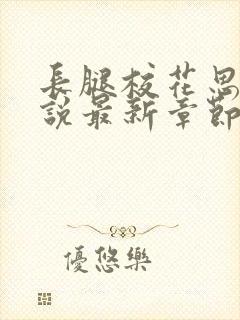 長腿校花思
說最新章節
優悠樂